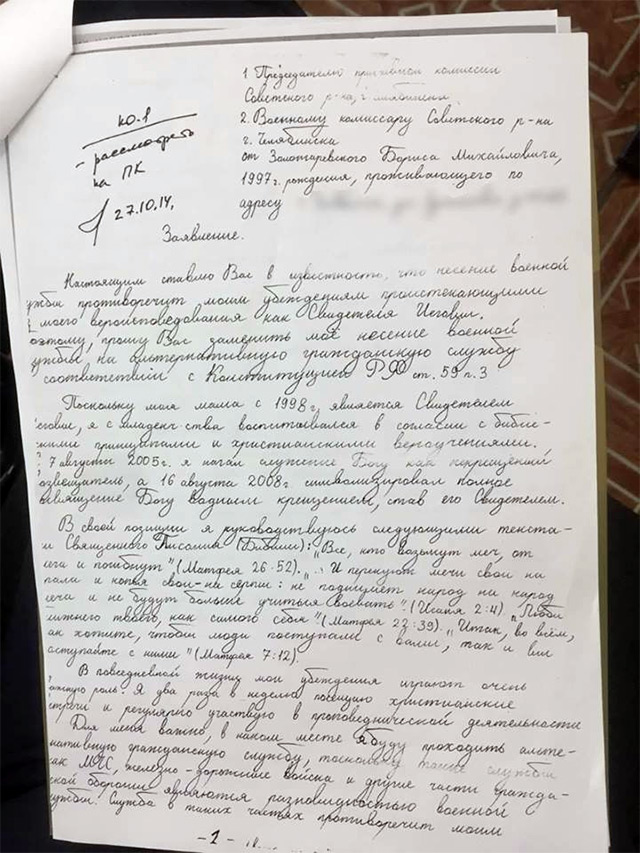 1 Председателю призывной комиссии
Советского р-на, г. Челябинска
2. Военному комиссару Советского р-на
г. Челябинска
от Золотаревского Бориса Михайловича,
1997 г. рождения, проживающего по
адресу
- рассмотреть
на ПК
27.10.14.
Заявление.
Настоящим ставлю Вас в известность, что несение военной
ужбы противоречит моим убеждениям проистекающими
моего вероисповедания как Свидетеля Иеговы.
оэтому, прошу Вас заменить моё несение военной
ужбы на альтернативную гражданскую службу
соответствии с Конституцией РФ ст. 59 п.3
Поскольку моя мама с 1998 г. является Свидетелем
еговы, я с младенчства воспитывался в согласии с библей-
скими принципами и христианскими вероучениями.
7 августа 2005 г. я начал служение Богу как некрещёный
озвещатель, а 16 августа 2008 г. символизировал полное
освящение Богу водным крещением, став его Свидетелем.
В своей позиции я руководствуюсь следующими текста-
и Священного Писания (Библии): „Все, кто возьмут меч, от
еча и погибнут" (Матфея 26:52). „... И перекуют мечи свои на
рала и копья свои - на серпы: не поднимет народ на народ
еча и не будут больше учиться воевать" (Исаия 2:4). „Люби
лижнего твоего, как самого себя" (Матфея 22:39). „Итак, во всём,
ак хотите, чтобы люди поступали с вами, так и вы
оступайте с ними" (Матфея 7:12).
В повседневной жизни мои убеждения играют очень
ажную роль. Я два раза в неделю посещаю христианские
стречи и регулярно участвую в проповеднической деятельности
Для меня важно, в каком месте я буду проходить альте-
нативную гражданскую службу, поскольку такие службы
как МЧС, железно-дорожные войска и другие части гражда-
ской обороны являются разновидностью военной
ужбы. Служба в таких частях противоречит моим
- 1 -